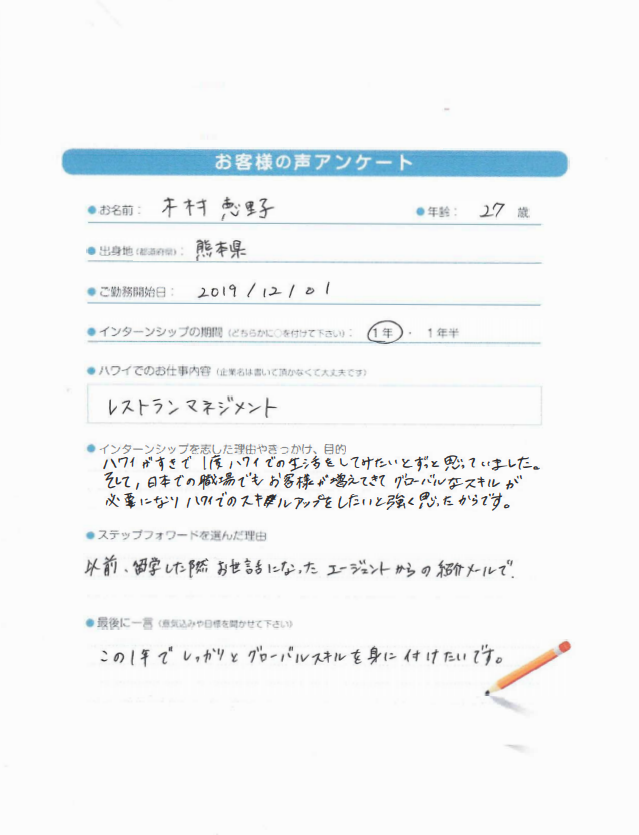 お客様の声アンケート
●お名前： 木村 恵野子 ●年齢： 27 歳
●出身地（都道府県）： 熊本県
●ご勤務開始日： 2019/12/01
●インターンシップの期間（どちらかに○を付けて下さい）： 1年 ・ 1年半
●ハワイでのお仕事内容（企業名は書いて頂かなくて大丈夫です）
レストランマネジメント
●インターンシップを志した理由やきっかけ、目的
ハワイがすきで 1度ハワイでの生活をしてみたいとずっと思っていました。
そして、日本での職場でもお客様が増えてきてグローバルなスキルが
必要になりハワイでのスキルアップをしたいと強く思ったからです。
●ステップフォワードを選んだ理由
以前、留学した際お世話になったエージェントからの紹介メールで.
●最後に一言（意気込みや目標を聞かせて下さい）
この1年でしっかりとグローバルスキルを身に付けたいです。